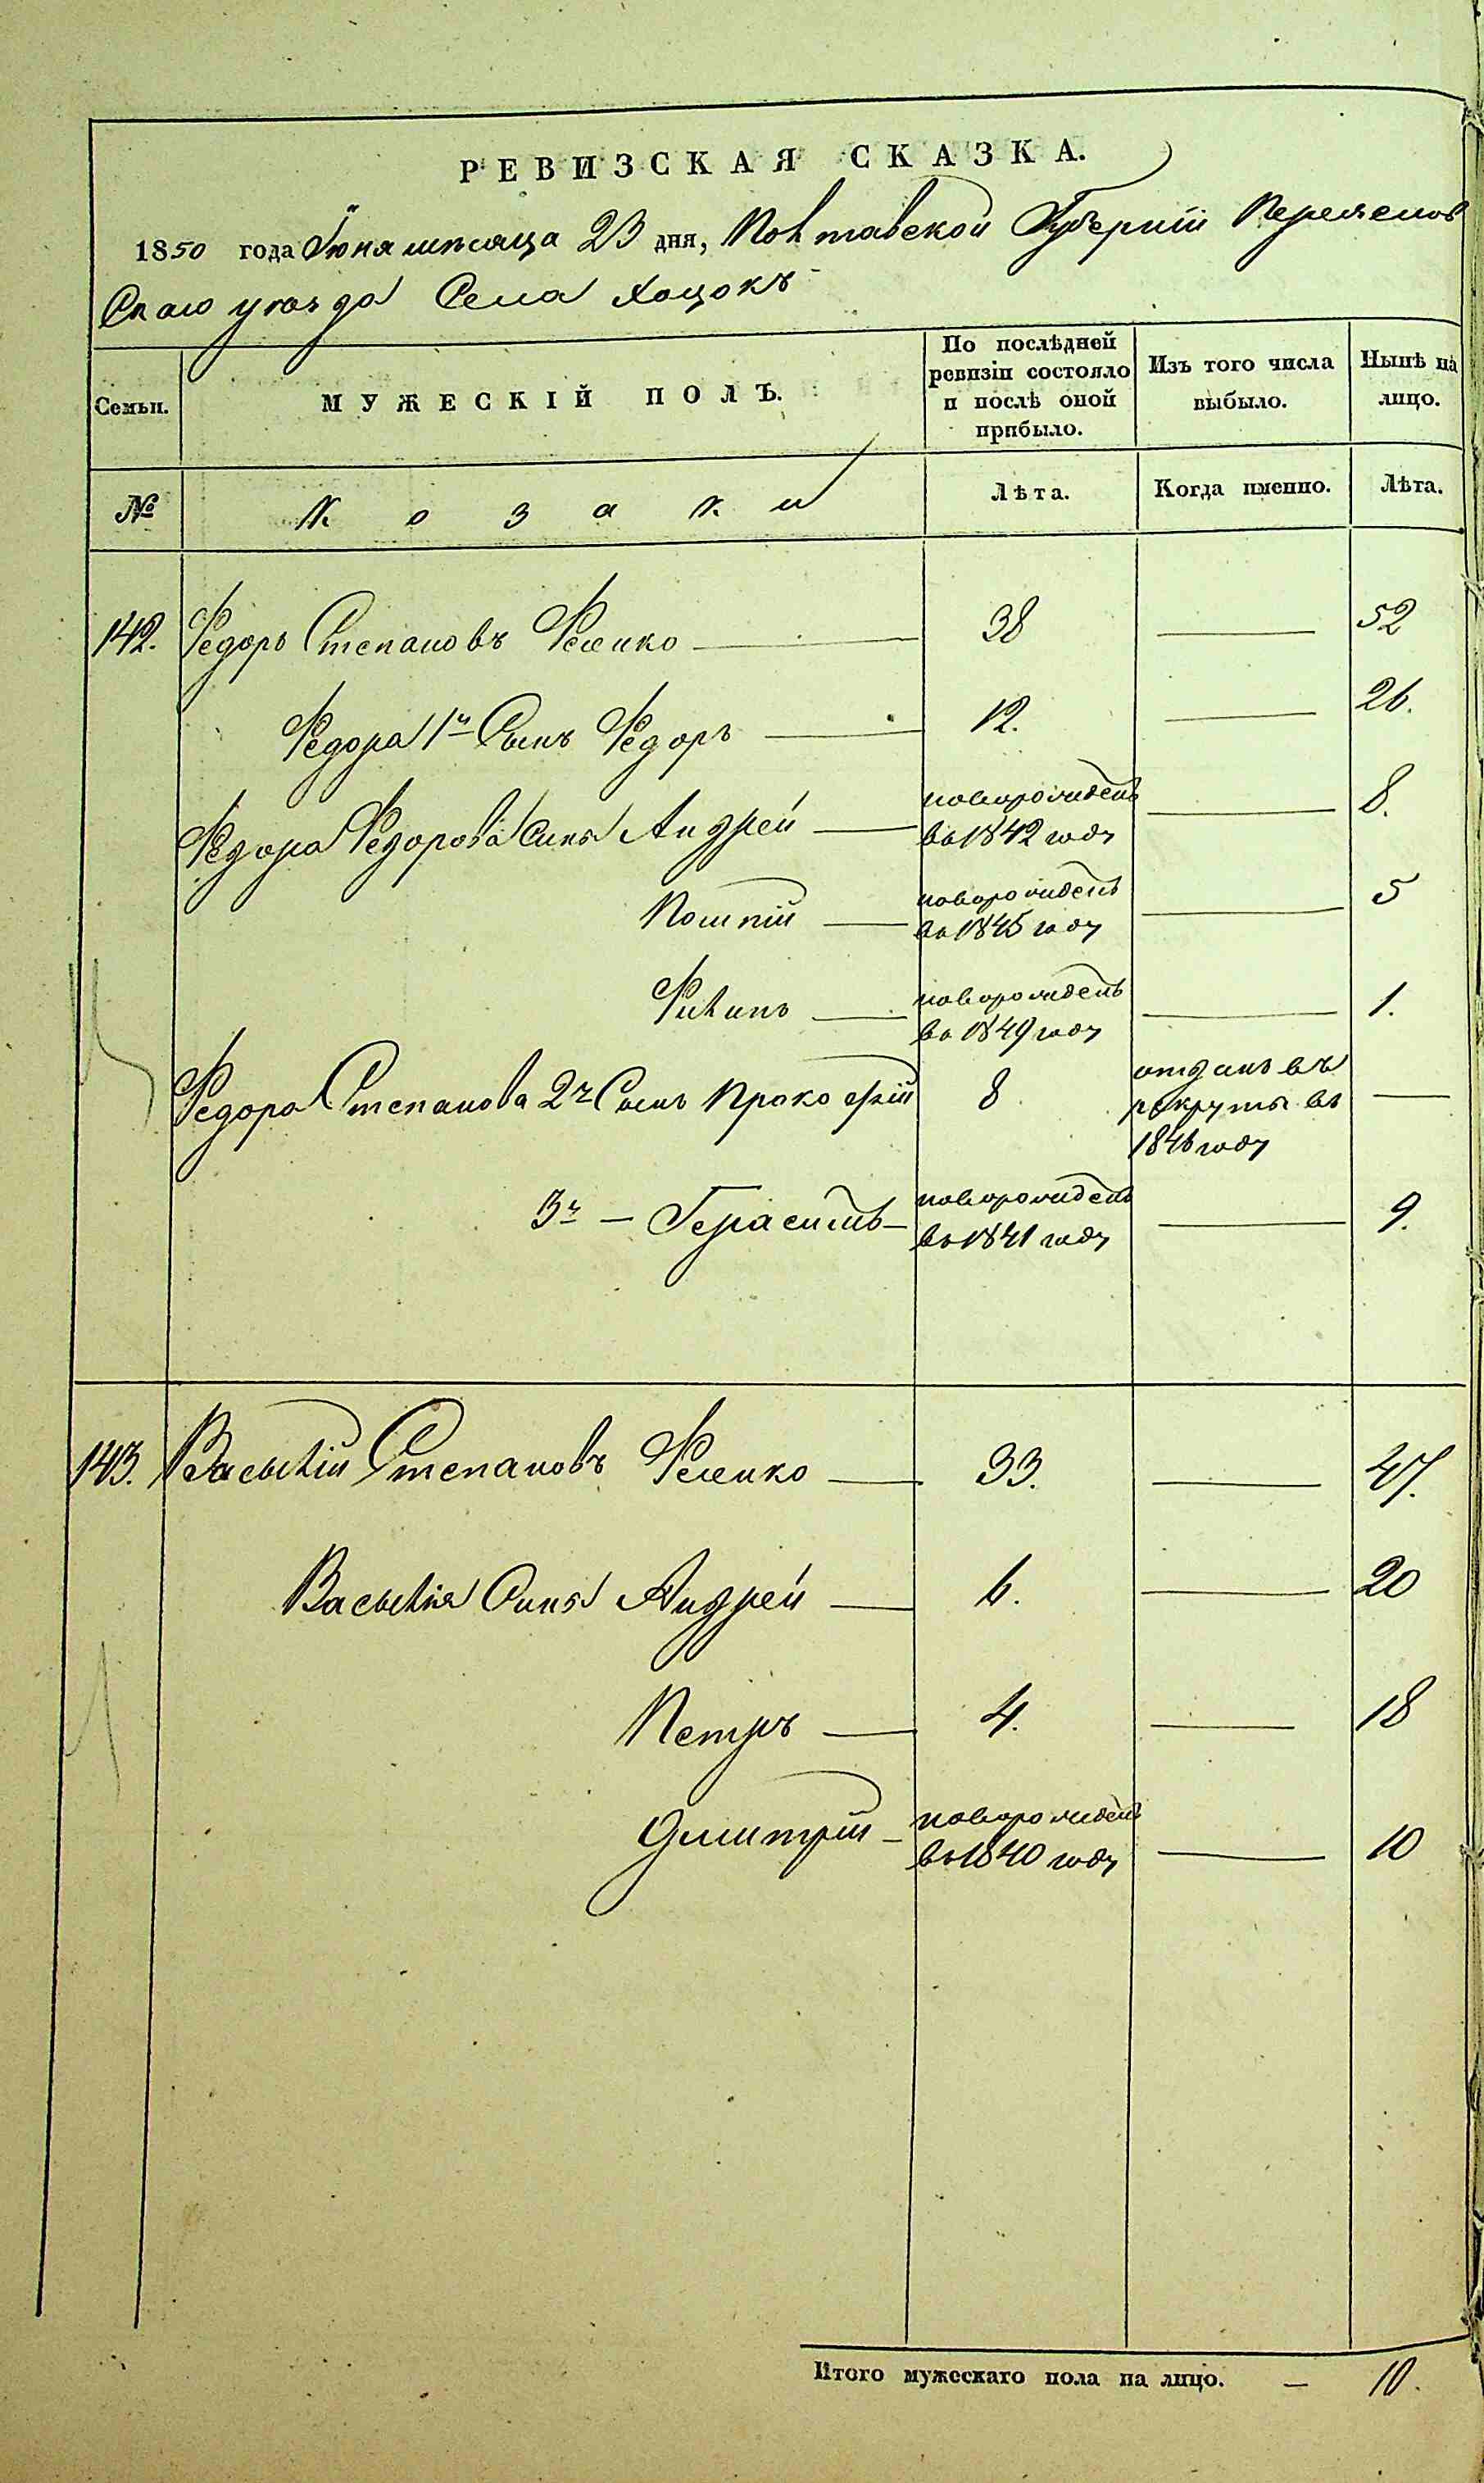 РЕВИЗСКАЯ СКАЗКА.
1850 года Іюня мѣсяца 23 дня, Полтавской Губерніи Переяслов
скаго уѣзда Села Хоцокъ
Семьи. МУЖЕСКІЙ ПОЛЪ. По послѣдней ревизіи состояло и послѣ оной прибыло. Изъ того числа выбыло. Нынѣ на лицо.
№ Козаки Лѣта. Когда именно. Лѣта.
142. Федоръ Степановъ 38 52
Федора 1й Сынъ Федоръ 12. 26.
Федора Федорова Сыны Андрей новорожденъ въ 1842 году 8.
новорожденъ въ 1845 году 5
Филипъ новорожденъ въ 1849 году 1.
Федора Степанова 2й Сынъ Прокофій 8 отданъ въ рекруты въ 1846 году
3й Герасимъ новорожденъ въ 1841 году 9.
143. Василій Степановъ 33. 47.
Василія Сыны Андрей 6. 20
Петръ 4. 18
Дмитрій новорожденъ въ 1840 году 10
Итого мужескаго пола на лицо. 10.